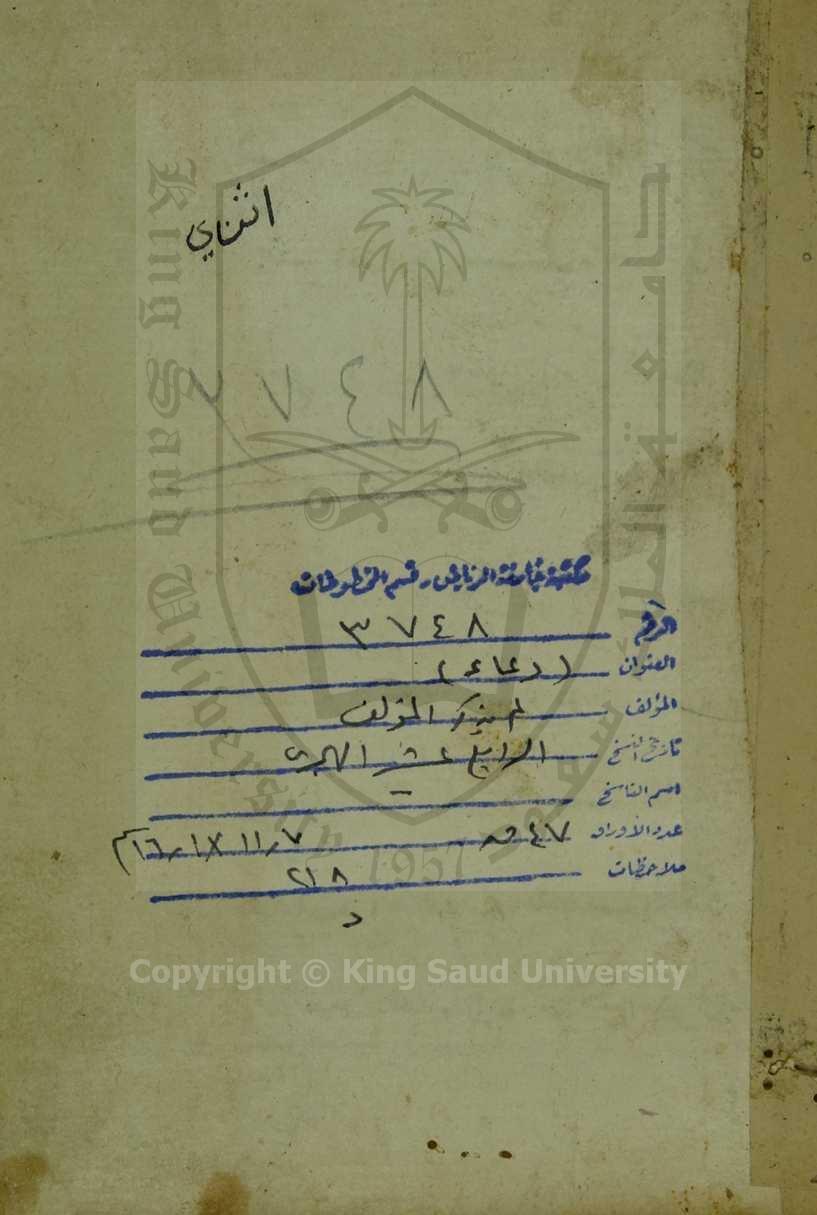 اثنائي
٧٧٤٨
مكتبة جامعة الرياض - قسم المخطوطات
الرقم ٣٧٤٨
العنوان (دعاء)
المؤلف لم يذكر المؤلف
تاريخ النسخ الرابع عشر الهجري
اسم الناسخ -
عدد الأوراق ٤٧ ق ١١٫٧ × ١٦٫١ سم
ملاحظات ٢١٨
د
King Saud University
جامعة الملك سعود
1957
Copyright © King Saud University